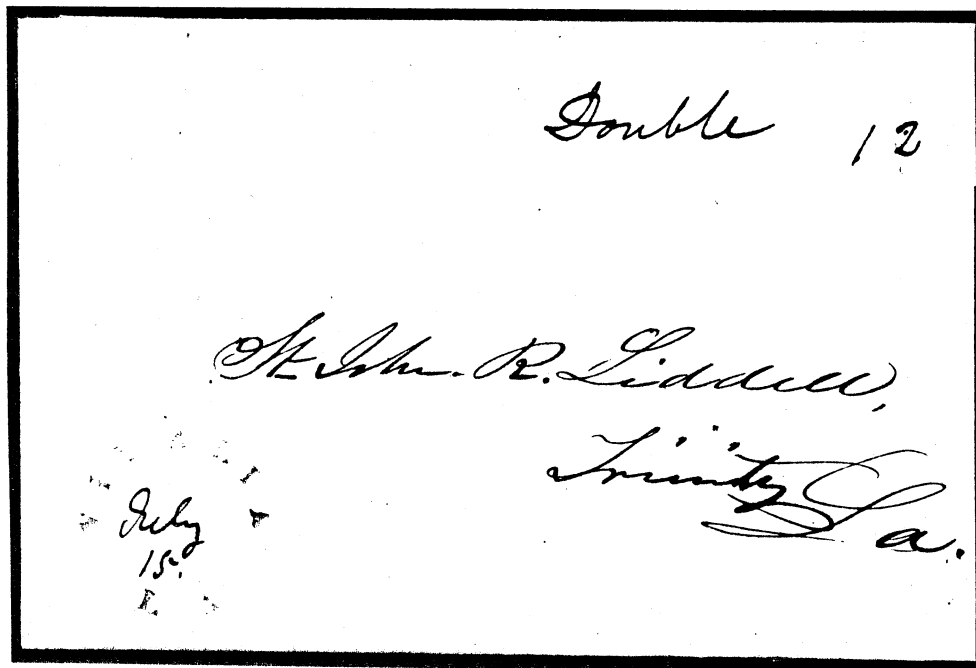 Double 12
St John. R. Liddell,
Trinity La.
July
15.